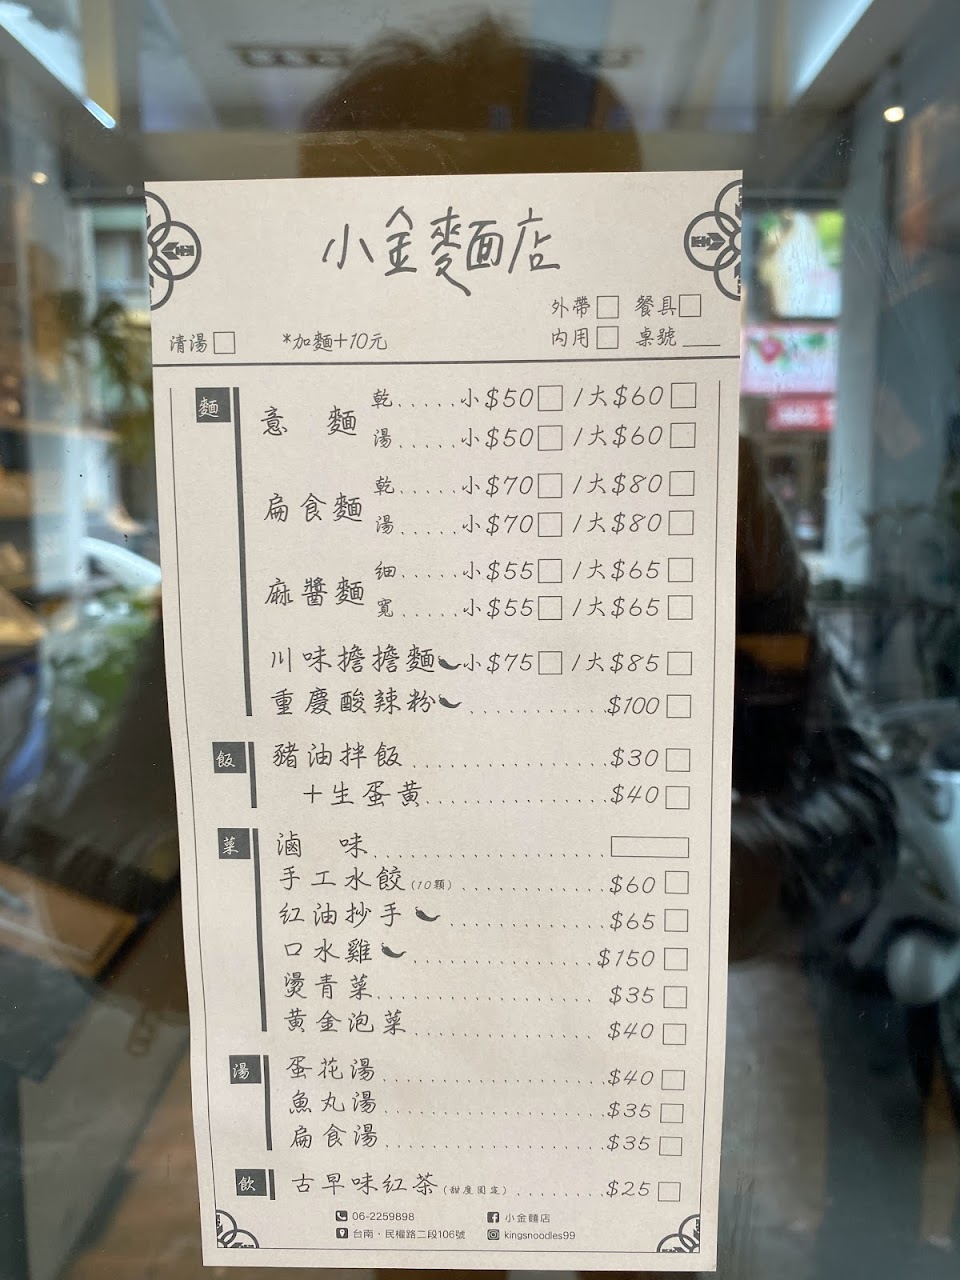 小金麵店
外帶□ 餐具□
清湯□ *加麵+10元 內用□ 桌號___
麵
意 麵 乾......小$50□/大$60□
湯......小$50□/大$60□
扁食麵 乾......小$70□/大$80□
湯......小$70□/大$80□
麻醬麵 細......小$55□/大$65□
寬......小$55□/大$65□
川味擔擔麵 小$75□/大$85□
重慶酸辣粉..........$100□
飯
豬油拌飯..........$30□
+生蛋黃..........$40□
菜
滷 味..........
手工水餃(10顆)..........$60□
紅油抄手..........$65□
口水雞..........$150□
燙青菜..........$35□
黃金泡菜..........$40□
湯
蛋花湯..........$40□
魚丸湯..........$35□
扁食湯..........$35□
飲
古早味紅茶(甜度固定)..........$25□
06-2259898 小金麵店
台南・民權路二段106號 kingsnoodles99